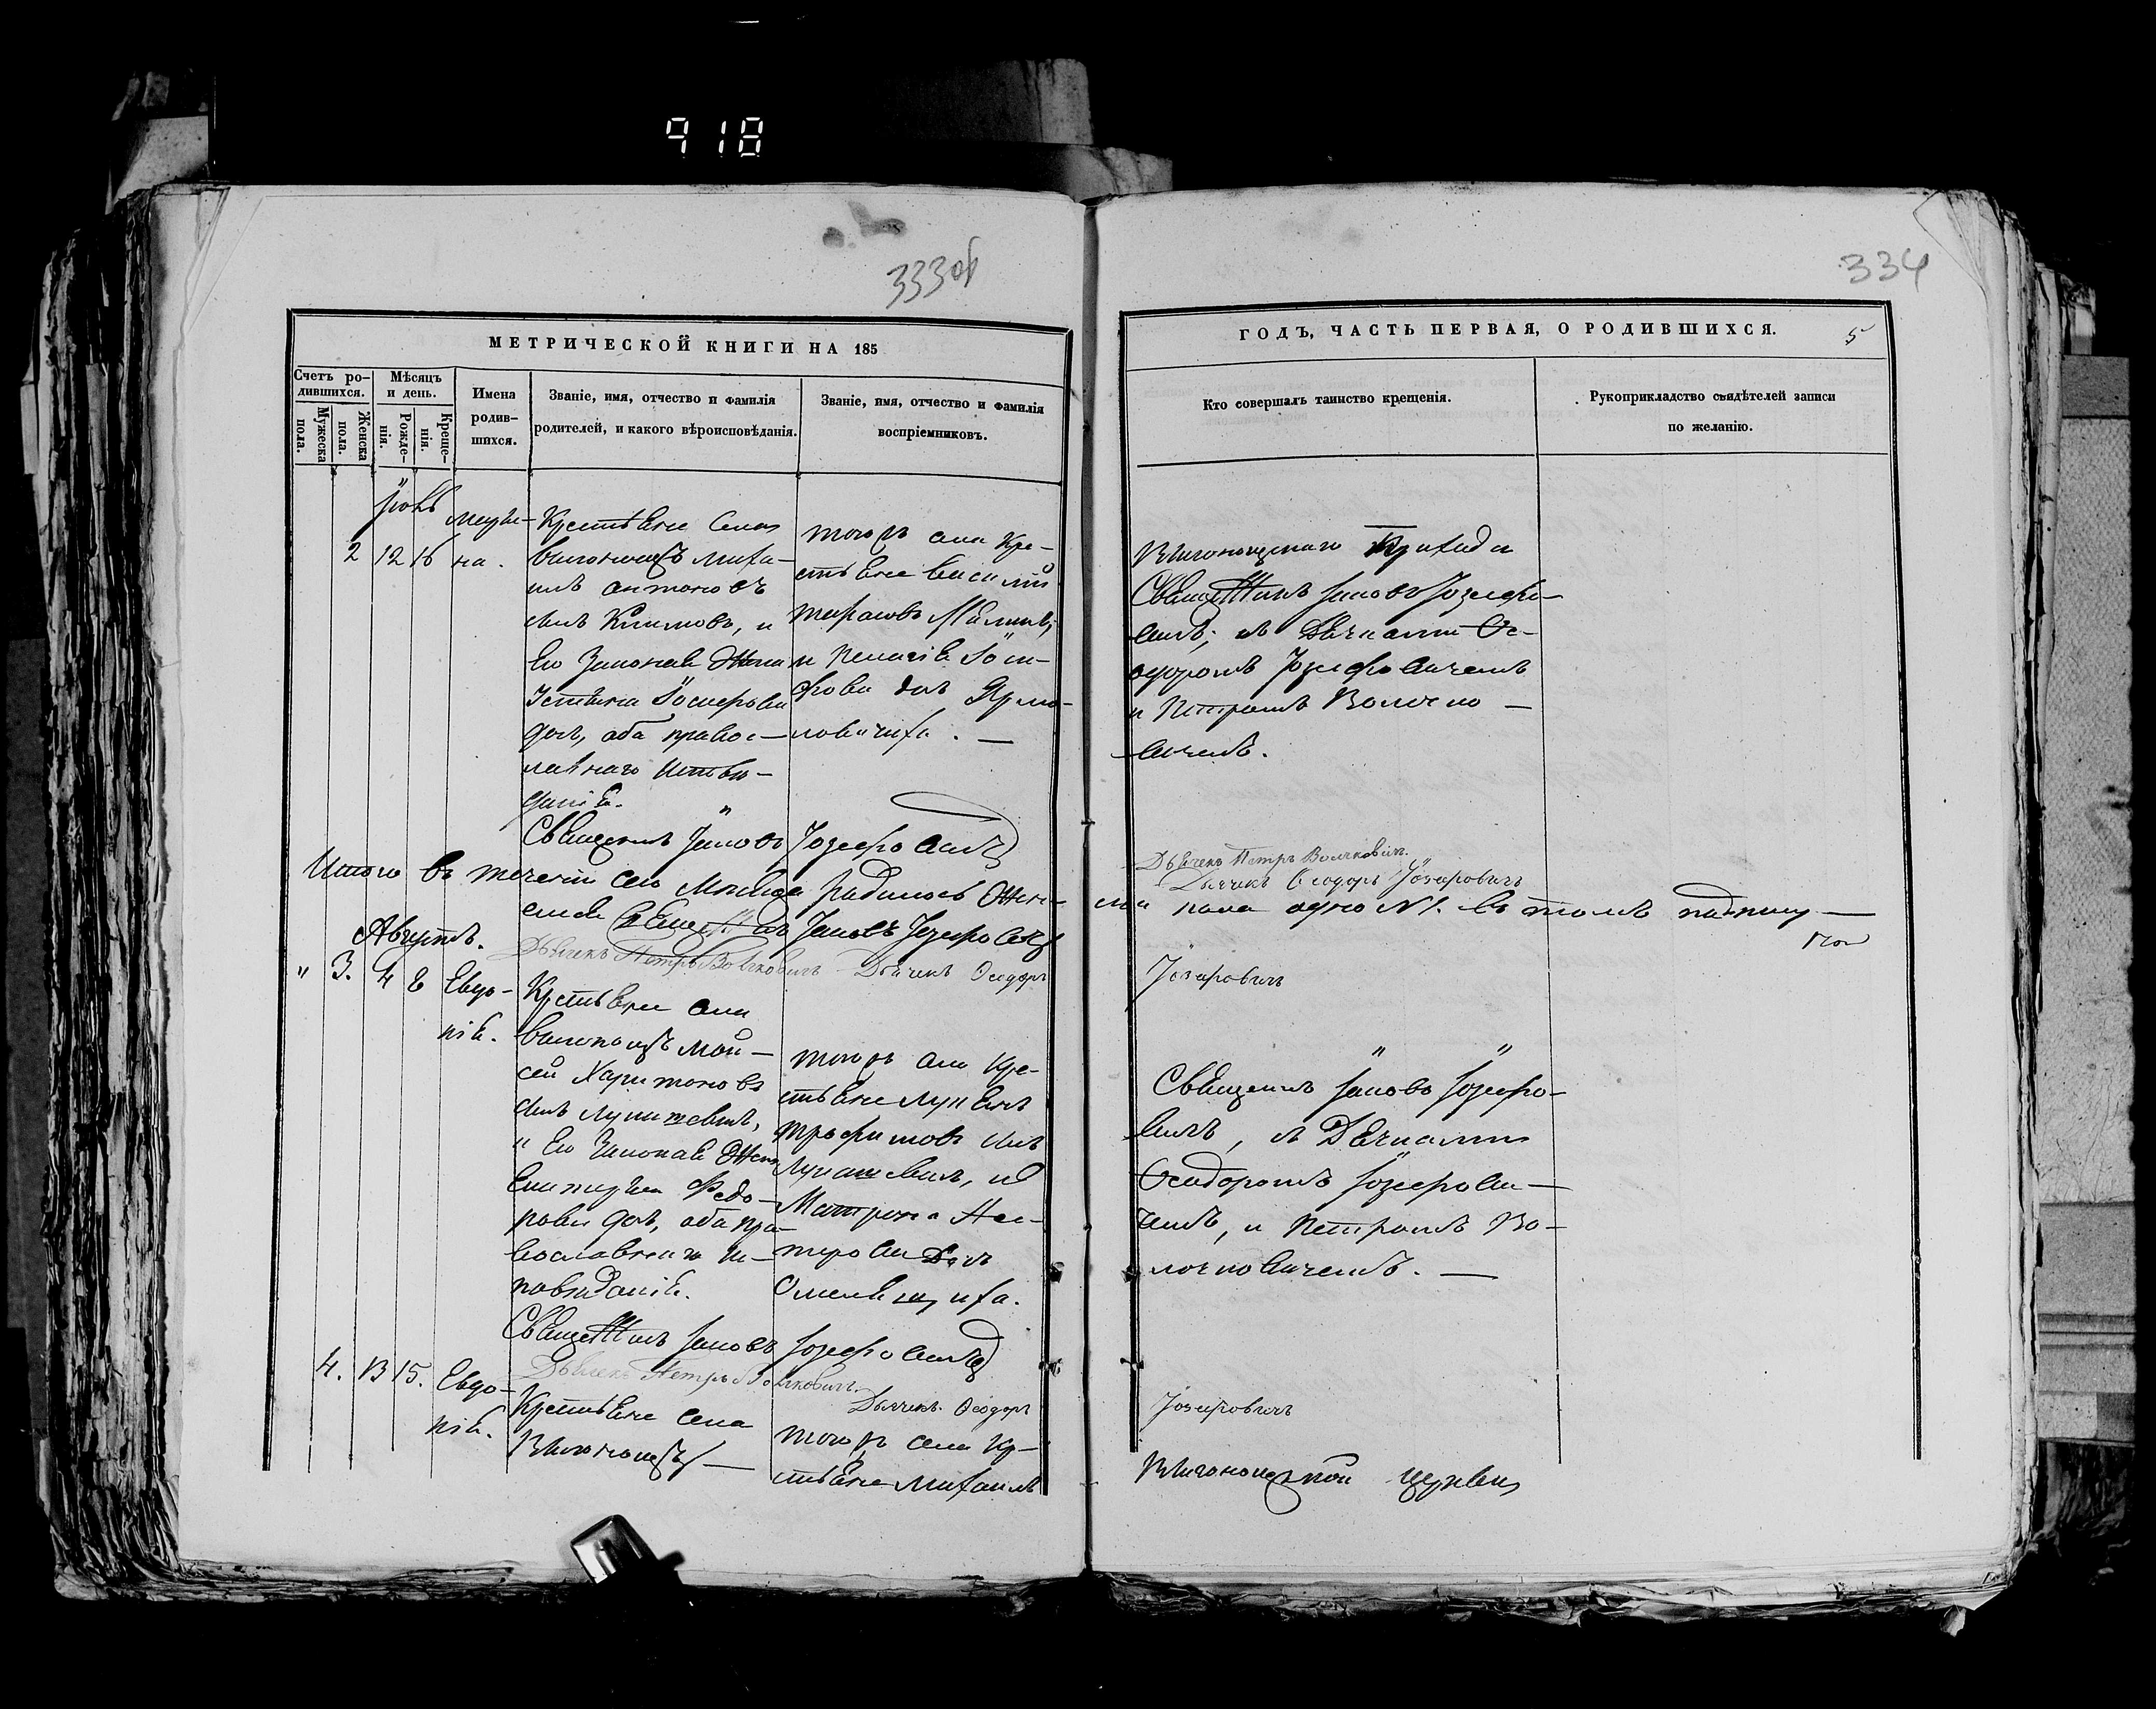 918
333об
334
МЕТРИЧЕСКОЙ КНИГИ НА 185
ГОДЪ, ЧАСТЬ ПЕРВАЯ, О РОДИВШИХСЯ.
5
Счетъ ро-
дившихся.
Мужеска
пола.
Женска
пола.
Мѣсяцъ
и день.
Рожде-
нія.
Креще-
нія.
Имена
родив-
шихся.
Званіе, имя, отчество и фамилія
родителей, и какого вѣроисповѣданія.
Званіе, имя, отчество и фамилія
воспріемниковъ.
Кто совершалъ таинство крещенія.
Рукоприкладство свидѣтелей записи
по желанію.
2 12 16 на.
Крестьяне села
Выгонощъ Миха-
илъ Антоновъ
сынъ Климовъ, и
его законная жена
Іосифова
дочь, оба правос-
лавнаго исповѣ-
данія.
тогожъ села Кре-
стьяне Василій
Тарасовъ
и Пелагія Іоси-
фова дочь Ярмо-
ловичиха.
Выгонощскаго Прихода
Священникъ Іаковъ Іозефо-
вичъ, съ Дьячками Ѳе-
одоромъ Іозефовичемъ
и Петромъ Волочко-
вичемъ.
Священникъ Іаковъ Іозефовичъ
Дьячекъ Петръ Волчковичъ.
Дьячекъ Ѳеодоръ Іозефовичъ
Итого въ теченіи сего Мѣсяца родилось Жен-
ска пола одно №1. въ томъ подпишу-
Священникъ Іаковъ Іозефовичъ
Дьячекъ Петръ Волчковичъ Дьячекъ Ѳеодоръ
Іозефовичъ
Августъ.
" 3. 4 8 Евдо-
кія.
Крестьяне села
Выгонощъ Мои-
сей Харитоновъ
сынъ Лукашевичъ,
и его законная жена
Екатерина Федо-
рова дочь, оба пра-
вославнаго ис-
повѣданія.
тогожъ села Кре-
стьяне Лукьянъ
Трофимовъ сынъ
Лукашевичъ, и
Матрона Нес-
терова Дочь
Священникъ Іаковъ Іозефо-
вичъ, съ Дьячками
Ѳеодоромъ Іозефови-
чемъ, и Петромъ Во-
лочковичемъ.
Священникъ Іаковъ Іозефовичъ
Дьячекъ Петръ Волчковичъ.
Дьячекъ Ѳеодоръ
Іозефовичъ
4. 13 15. Евдо-
кія.
Крестьяне села
Выгонощъ
тогожъ села Кр-
стьяне Михаилъ
Выгонощской церкви